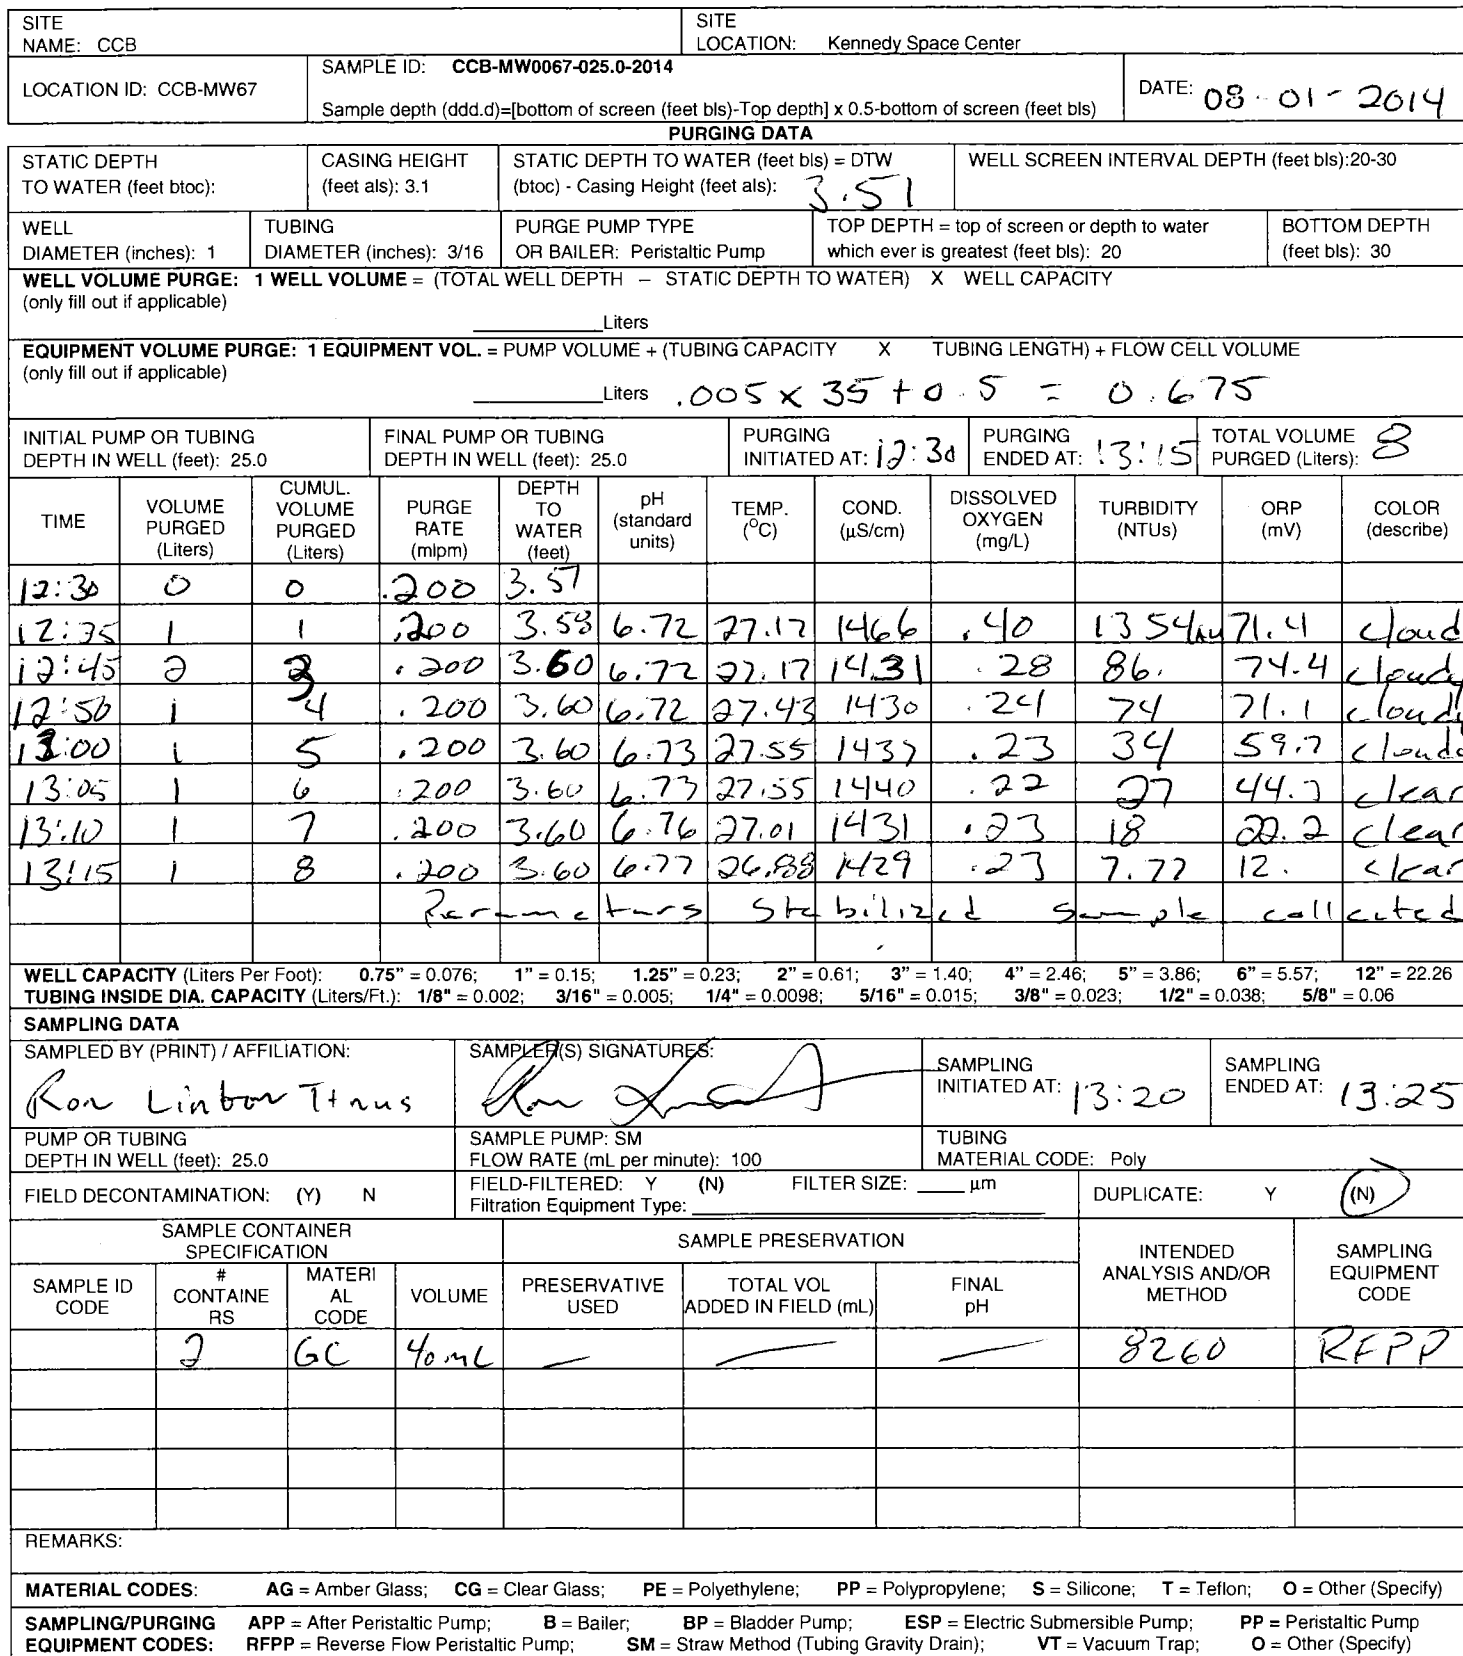 SITE NAME: CCB SITE LOCATION: Kennedy Space Center
LOCATION ID: CCB-MW67 SAMPLE ID: CCB-MW0067-025.0-2014 DATE: 08-01-2014
Sample depth (ddd.d)=[bottom of screen (feet bls)-Top depth] x 0.5-bottom of screen (feet bls)
PURGING DATA
STATIC DEPTH TO WATER (feet btoc): CASING HEIGHT (feet als): 3.1 STATIC DEPTH TO WATER (feet bls) = DTW (btoc) - Casing Height (feet als): 3.51 WELL SCREEN INTERVAL DEPTH (feet bls):20-30
WELL DIAMETER (inches): 1 TUBING DIAMETER (inches): 3/16 PURGE PUMP TYPE OR BAILER: Peristaltic Pump TOP DEPTH = top of screen or depth to water which ever is greatest (feet bls): 20 BOTTOM DEPTH (feet bls): 30
WELL VOLUME PURGE: 1 WELL VOLUME = (TOTAL WELL DEPTH – STATIC DEPTH TO WATER) X WELL CAPACITY
(only fill out if applicable)
Liters
EQUIPMENT VOLUME PURGE: 1 EQUIPMENT VOL. = PUMP VOLUME + (TUBING CAPACITY X TUBING LENGTH) + FLOW CELL VOLUME
(only fill out if applicable)
Liters .005 x 35 + 0.5 = 0.675
INITIAL PUMP OR TUBING DEPTH IN WELL (feet): 25.0 FINAL PUMP OR TUBING DEPTH IN WELL (feet): 25.0 PURGING INITIATED AT: 12:30 PURGING ENDED AT: 13:15 TOTAL VOLUME PURGED (Liters): 8
TIME VOLUME PURGED (Liters) CUMUL. VOLUME PURGED (Liters) PURGE RATE (mlpm) DEPTH TO WATER (feet) pH (standard units) TEMP. (°C) COND. (µS/cm) DISSOLVED OXYGEN (mg/L) TURBIDITY (NTUs) ORP (mV) COLOR (describe)
12:30 0 0 .200 3.57
12:35 1 1 .200 3.58 6.72 27.17 1466 .40 71.4 cloud
12:45 2 3 .200 3.60 6.72 27.17 1431 .28 86. 74.4 cloudy
12:50 1 4 .200 3.60 6.72 27.43 1430 .24 74 71.1 cloudy
13:00 1 5 .200 3.60 6.73 27.55 1437 .23 34 59.7 cloudy
13:05 1 6 .200 3.60 6.73 27.55 1440 .22 27 44.7 clear
13:10 1 7 .200 3.60 6.76 27.01 1431 .23 18 22.2 clear
13:15 1 8 .200 3.60 6.77 26.88 1429 .23 7.77 12. clear
Parameters Stabilized Sample collected
WELL CAPACITY (Liters Per Foot): 0.75" = 0.076; 1" = 0.15; 1.25" = 0.23; 2" = 0.61; 3" = 1.40; 4" = 2.46; 5" = 3.86; 6" = 5.57; 12" = 22.26
TUBING INSIDE DIA. CAPACITY (Liters/Ft.): 1/8" = 0.002; 3/16" = 0.005; 1/4" = 0.0098; 5/16" = 0.015; 3/8" = 0.023; 1/2" = 0.038; 5/8" = 0.06
SAMPLING DATA
SAMPLED BY (PRINT) / AFFILIATION: Ron Linton SAMPLER(S) SIGNATURES: SAMPLING INITIATED AT: 13:20 SAMPLING ENDED AT: 13:25
PUMP OR TUBING DEPTH IN WELL (feet): 25.0 SAMPLE PUMP: SM FLOW RATE (mL per minute): 100 TUBING MATERIAL CODE: Poly
FIELD DECONTAMINATION: (Y) N FIELD-FILTERED: Y (N) FILTER SIZE: ____ µm DUPLICATE: Y (N)
Filtration Equipment Type:
SAMPLE CONTAINER SPECIFICATION SAMPLE PRESERVATION INTENDED ANALYSIS AND/OR METHOD SAMPLING EQUIPMENT CODE
SAMPLE ID CODE # CONTAINE RS MATERI AL CODE VOLUME PRESERVATIVE USED TOTAL VOL ADDED IN FIELD (mL) FINAL pH
2 GC 40 mL — — — 8260 RFPP
REMARKS:
MATERIAL CODES: AG = Amber Glass; CG = Clear Glass; PE = Polyethylene; PP = Polypropylene; S = Silicone; T = Teflon; O = Other (Specify)
SAMPLING/PURGING APP = After Peristaltic Pump; B = Bailer; BP = Bladder Pump; ESP = Electric Submersible Pump; PP = Peristaltic Pump
EQUIPMENT CODES: RFPP = Reverse Flow Peristaltic Pump; SM = Straw Method (Tubing Gravity Drain); VT = Vacuum Trap; O = Other (Specify)